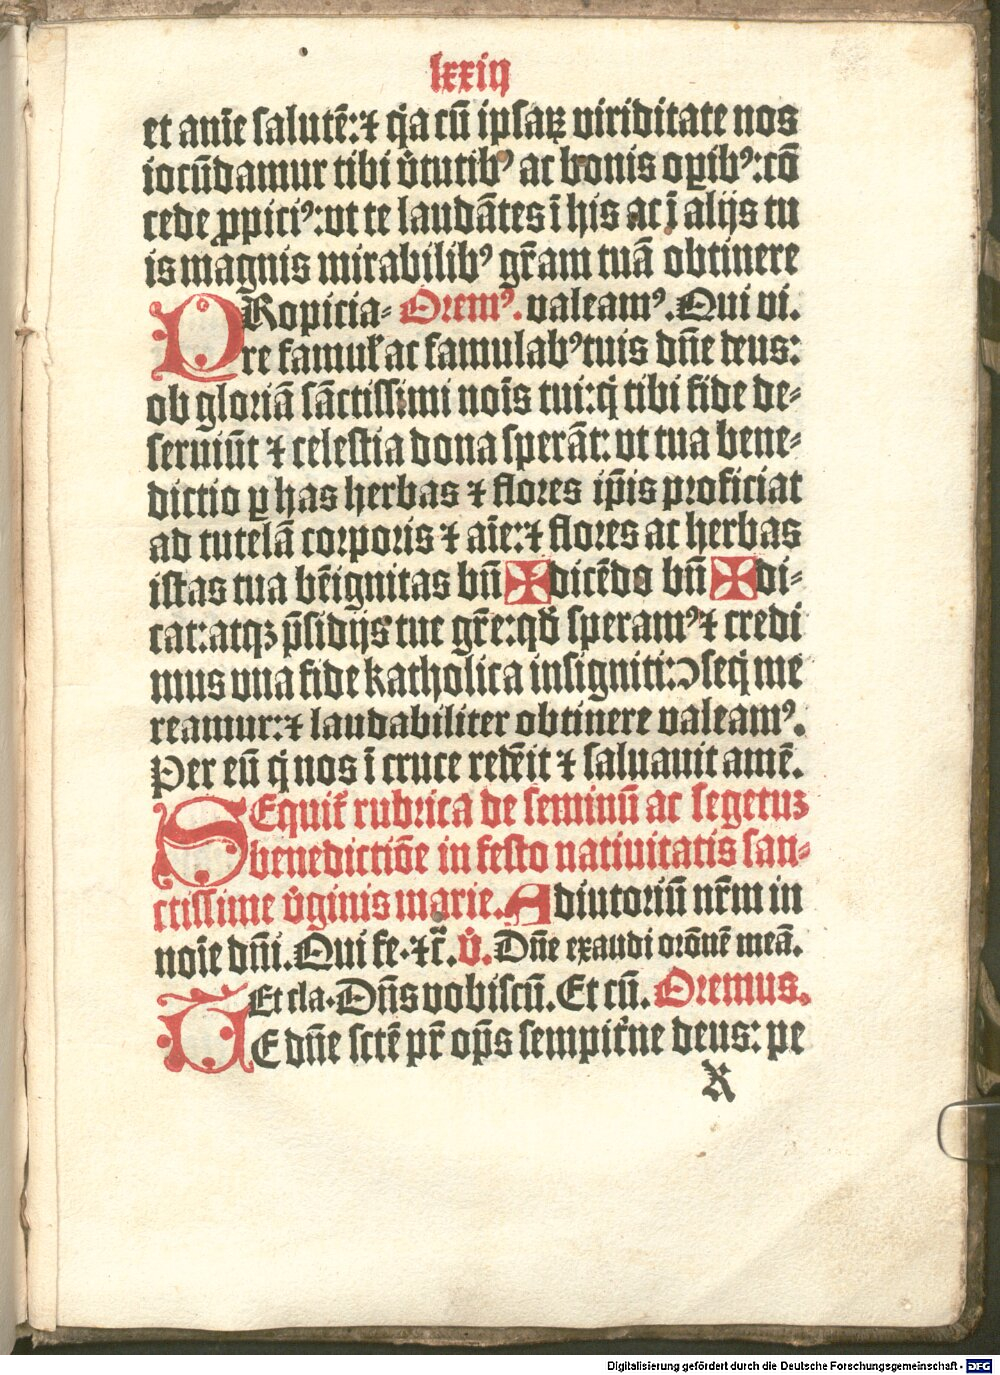 lxxiij
et anīe salutē: ⁊ q̇a cū ipsaꝝ viriditate nos
iocūdamur tibi v̇tutibꝰ ac bonis oꝑibꝰ: cō
cede ꝓpiciꝰ: vt te laudātes ī his ac ī alijs tu
is magnis mirabilibꝰ gr̄am tuā obtinere
PRopicia⸗ Oremꝰ. valeamꝰ. Qui vi.
re famul̕ ac famulabꝰ tuis dn̄e deus:
ob gloriā sāctissimi noīs tui: q̇ tibi fide de⸗
seruiūt ⁊ celestia dona sperāt: vt tua bene⸗
dictio ꝑ has herbas ⁊ flores ip̄is proficiat
ad tutelā corporis ⁊ aīe: ⁊ flores ac herbas
istas tua bēignitas bn̄ ✠ dicēdo bn̄ ✠ di⸗
cat: atqꝫ p̄sidijs tue gr̄e: qd̕ speramꝰ ⁊ credi
mus vna fide katholica insigniti: ↄseq̇ me
reamur: ⁊ laudabiliter obtinere valeamꝰ.
Per eū q̇ nos ī cruce redēit ⁊ saluauit amē.
SEquit̕ rubrica de seminū ac segetuꝫ
benedictiōe in festo natiuitatis san⸗
ctissime v̇ginis marie. Adiutoriū nr̄m in
noīe dn̄i. Qui fe. ⁊c̄. v̇. Dn̄e exaudi orōnē meā.
Et cla. Dn̄s vobiscū. Et cū. Oremus.
TE dn̄e sctē pr̄ op̄s sempit̕ne deus: pe
K
Digitalisierung gefördert durch die Deutsche Forschungsgemeinschaft - DFG